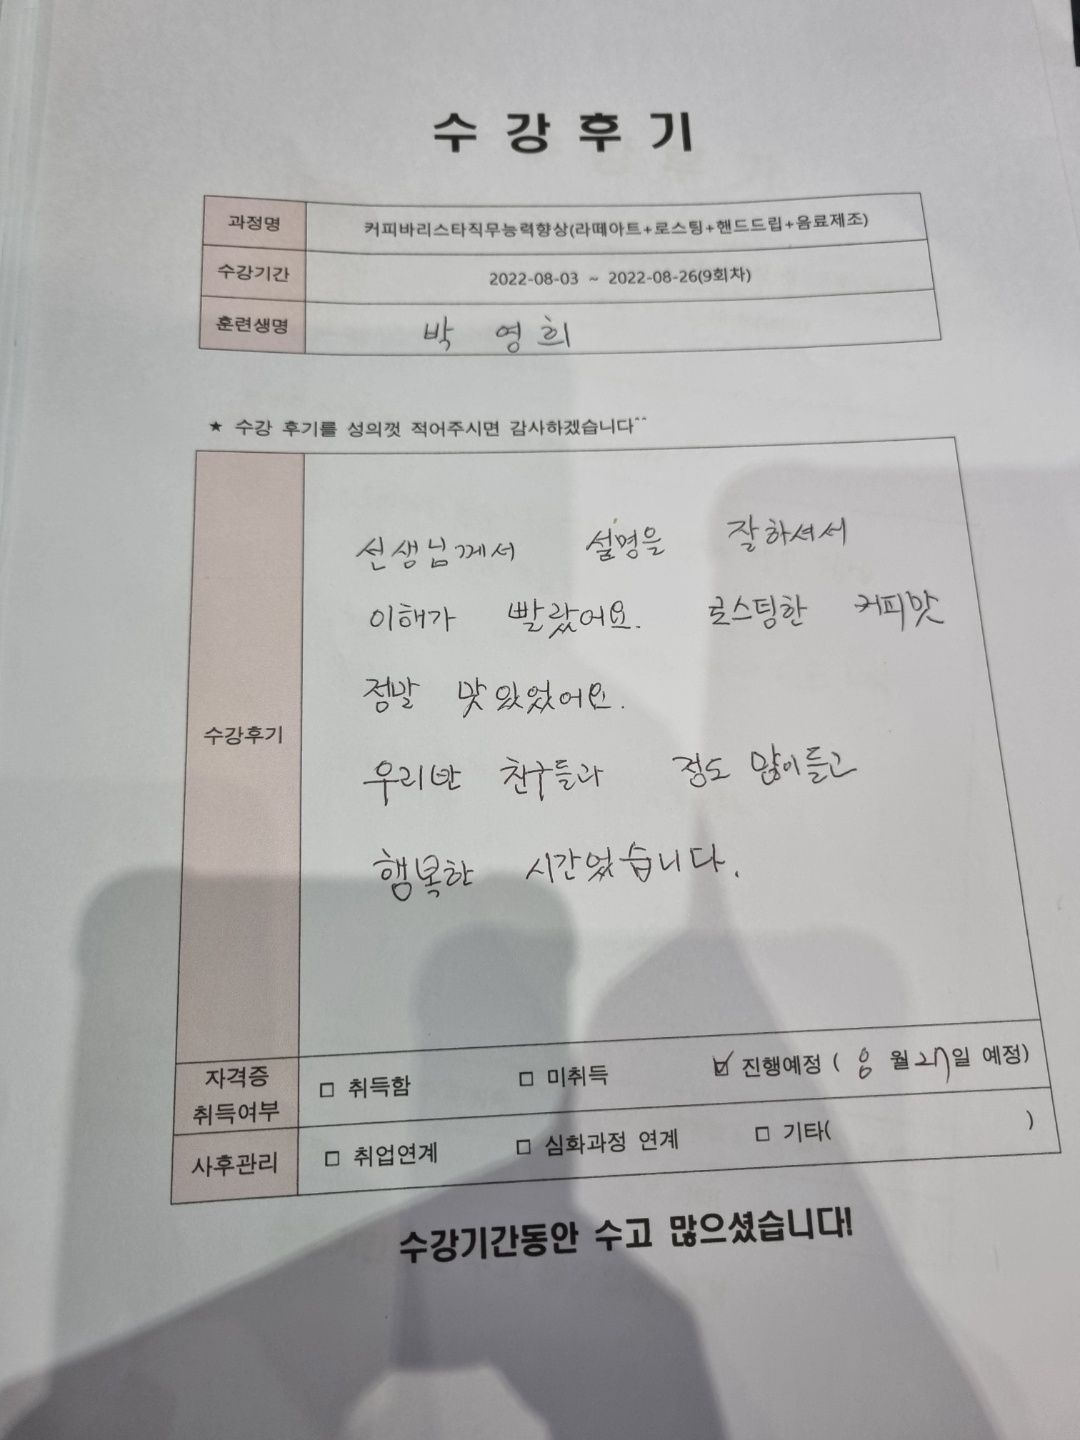 수 강 후 기
과정명 커피바리스타직무능력향상(라떼아트+로스팅+핸드드립+음료제조)
수강기간 2022-08-03 ~ 2022-08-26(9회차)
훈련생명 박 영 희
★ 수강 후기를 성의껏 적어주시면 감사하겠습니다^^
수강후기
선생님께서 설명을 잘하셔서
이해가 빨랐어요. 로스팅한 커피맛
정말 맛있었어요.
우리반 친구들과 정도 많이들고
행복한 시간었습니다.
자격증 취득여부 □ 취득함 □ 미취득 ☑ 진행예정 ( 8 월 27일 예정)
사후관리 □ 취업연계 □ 심화과정 연계 □ 기타( )
수강기간동안 수고 많으셨습니다!